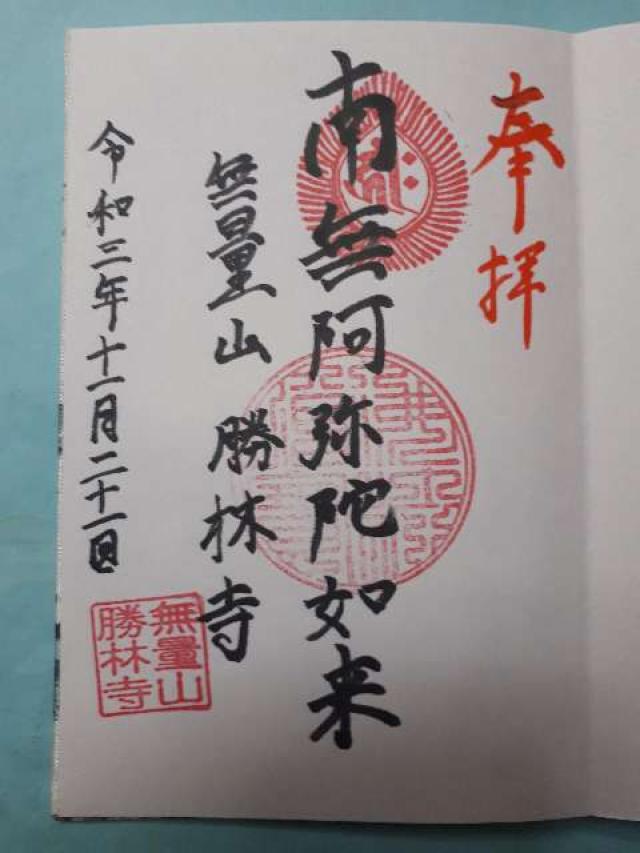 奉拝
南無阿弥陀如来
無量山 勝林寺
令和三年十一月二十一日
無量山
勝林寺